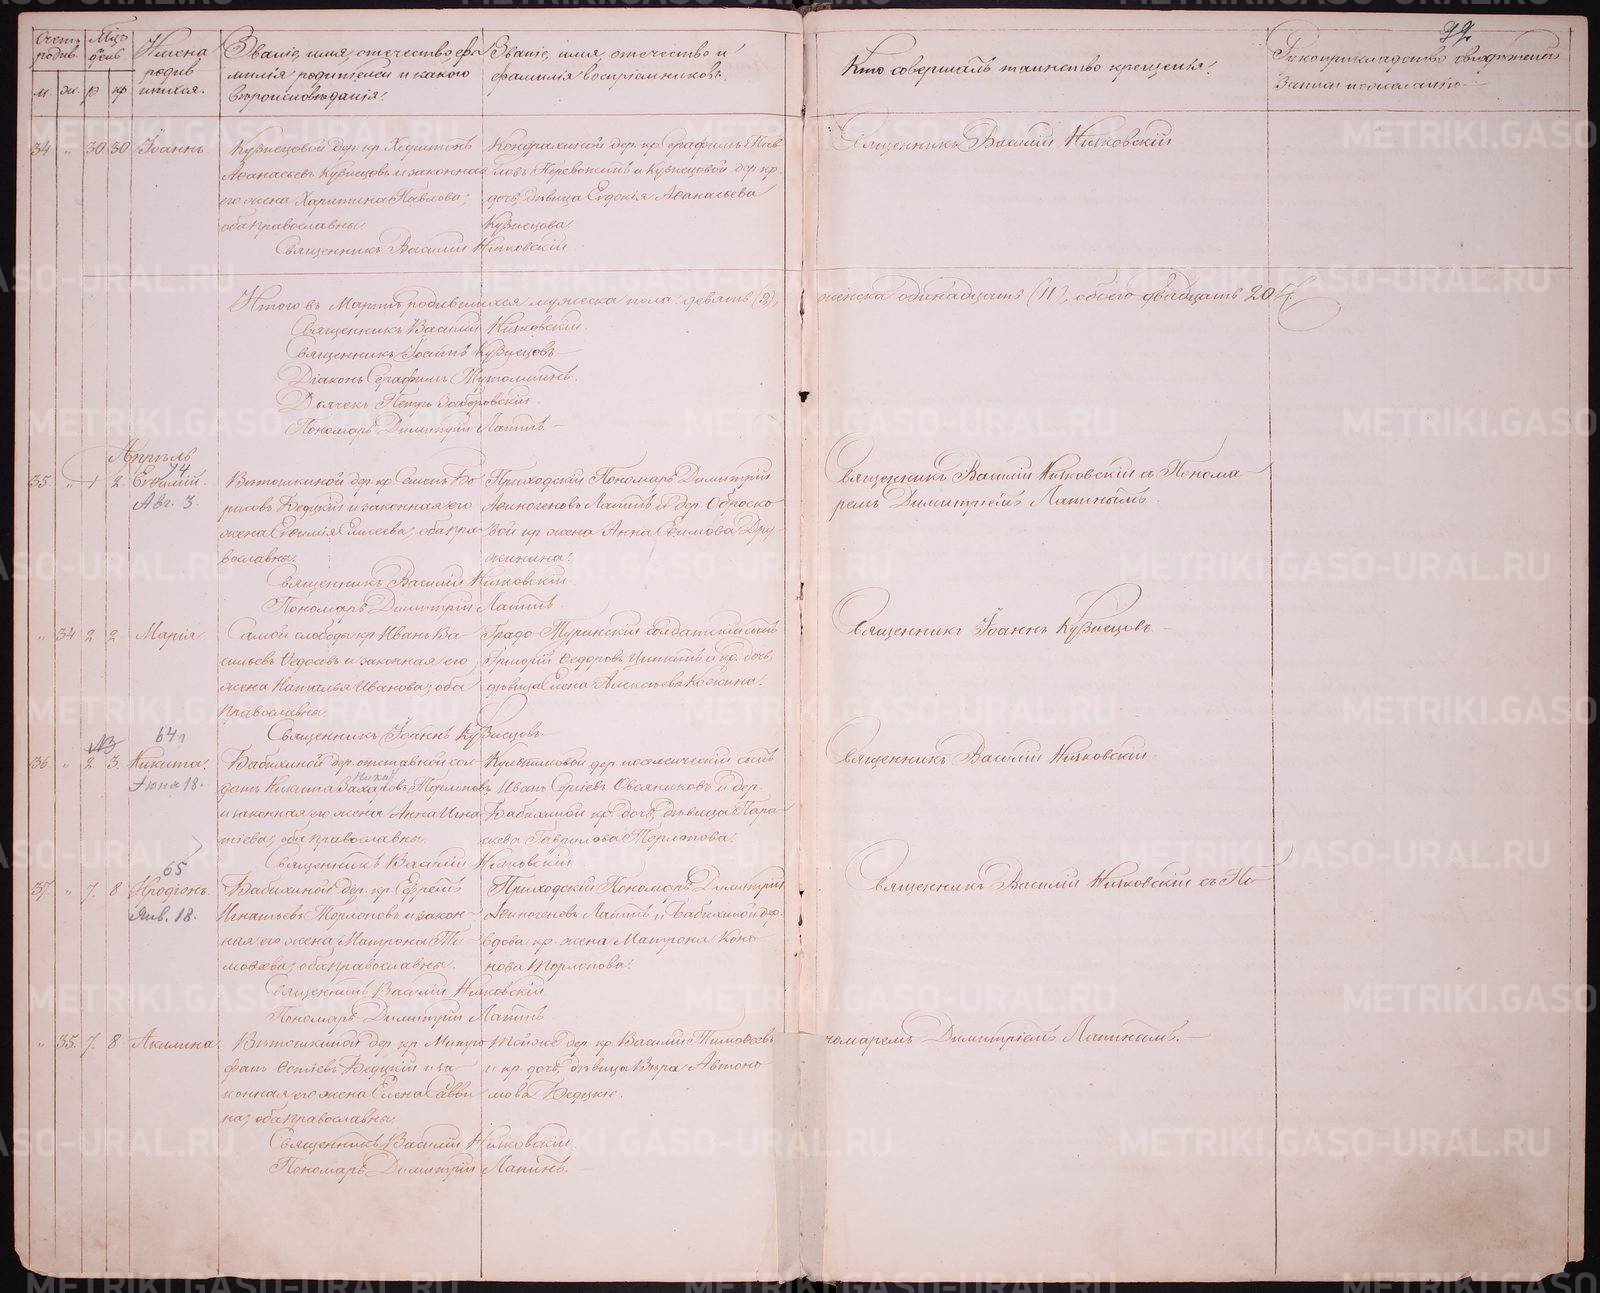 99.
Счетъ родив. Мѣцъ и день Имена родившихся. Званіе, имя, отечество, фамилія родителей и какого вѣроисповѣданія. Званіе, имя, отечество и фамилія воспріемниковъ. Кто совершалъ таинство крещенія. Рукоприкладство свидѣтелей записи по желанію
м. ж. р кр
34 " 30 30 Іоаннъ
Кузнецовой дер. кр. Харитонъ
Аѳанасьевъ Кузнецовъ и законная
его жена Харитина Павлова;
оба православны.
Священникъ Василій Никовскій
Кондрахиной дер. кр. Серафимъ Пав
ловъ и Кузнецовой дер. кр.
дочь, дѣвица Евдокія Аѳанасьева
Кузнецова.
Священникъ Василій Никовскій
Итого въ Мартѣ родившихся мужеска пола девять (9), женска одинадцать (11), обоего двадцать 20.
Священникъ Василій Никовскій.
Священникъ Іоаннъ Кузнецовъ
Діаконъ Серафимъ
Дьячекъ Петръ Заборовскій
Пономарь Димитрій Лапинъ
Апрѣль
74
35 " 1 2 Евѳимій.
Авг. 3.
Вѣтошкиной дер. кр. Семенъ Бо
рисовъ Бедцкій и законная его
жена Евѳимія Елисеева; оба пра
вославны.
Священникъ Василій Никовскій
Пономарь Димитрій Лапинъ
Приходскій Пономарь Димитрій
Аѳиногеновъ Лапинъ и дер. Оброско
вой кр. жена Анна Ефимова Дру
жинина.
Священникъ Василій Никовскій съ Понома
ремъ Димитріемъ Лапинымъ
" 34 2 2 Марія
Самой слободы кр. Иванъ Ва
сильевъ Ѳедосѣевъ и законная его
жена Наталья Иванова; оба
православны.
Священникъ Іоаннъ Кузнецовъ
Градо-Туринскій солдатскій сынъ
Григорій Ѳедоровъ и кр. дочь,
дѣвица Елена Алексѣева
Священникъ Іоаннъ Кузнецовъ
641
36 " 2 3 Никита.
Іюня 18.
Бабихиной дер. отставной сол
датъ Никита Захаровъ Торлоповъ
и законная его жена Анна Игна
тіева; оба православны.
Священникъ Василій Никовскій
дер. поселенческій сынъ
Иванъ Сергіевъ Овсяниковъ и дер.
Бабихиной кр. дочь, дѣвица Пара
скева Гаврилова Торлопова.
Священникъ Василій Никовскій
65
37 " 7. 8 Иродіонъ
Янв. 18.
Бабихиной дер. кр. Ефремъ
Игнатьевъ Торлоповъ и закон
ная его жена Матрона Ти
моѳеева; оба православны.
Священникъ Василій Никовскій
Пономарь Димитрій Лапинъ
Приходскій Пономарь Димитрій
Аѳиногеновъ Лапинъ и Бабихиной дер.
вдова кр. жена Матрона Коно
нова Торлопова.
Священникъ Василій Никовскій съ По
" 35. 7. 8 Акилина
Вѣтошкиной дер. кр. Митро
фанъ Бедцкій и за
конная его жена Елена Савви
на; оба православны.
Священникъ Василій Никовскій.
Пономарь Димитрій Лапинъ.
Той же дер. кр. Василій Тимоѳеевъ
и кр. дочь, дѣвица Вѣра Автоно
мова Бедцкіе.
номаремъ Димитріемъ Лапинымъ.
METRIKI.GASO-URAL.RU